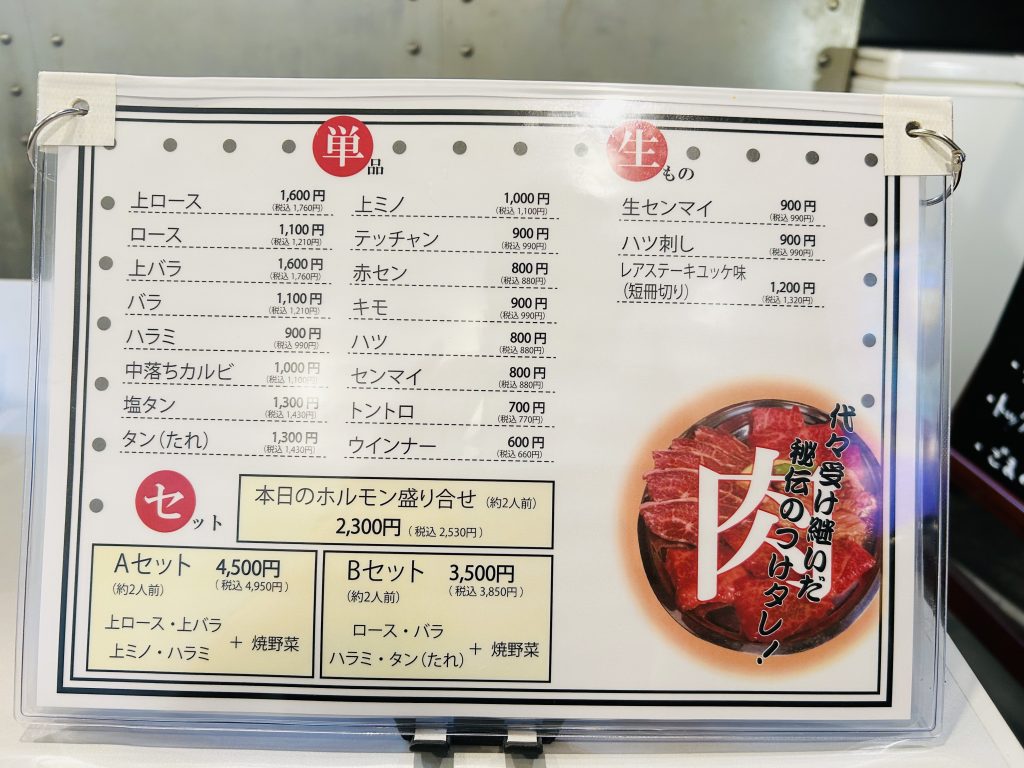 単品
上ロース 1,600円
(税込 1,760円)
ロース 1,100円
(税込 1,210円)
上バラ 1,600円
(税込 1,760円)
バラ 1,100円
(税込 1,210円)
ハラミ 900円
(税込 990円)
中落ちカルビ 1,000円
(税込 1,100円)
塩タン 1,300円
(税込 1,430円)
タン(たれ) 1,300円
(税込 1,430円)
上ミノ 1,000円
(税込 1,100円)
テッチャン 900円
(税込 990円)
赤セン 800円
(税込 880円)
キモ 900円
(税込 990円)
ハツ 800円
(税込 880円)
センマイ 800円
(税込 880円)
トントロ 700円
(税込 770円)
ウインナー 600円
(税込 660円)
生もの
生センマイ 900円
(税込 990円)
ハツ刺し 900円
(税込 990円)
レアステーキユッケ味
(短冊切り) 1,200円
(税込 1,320円)
セット
本日のホルモン盛り合せ (約2人前)
2,300円 (税込 2,530円)
Aセット 4,500円
(約2人前) (税込 4,950円)
上ロース・上バラ
上ミノ・ハラミ + 焼野菜
Bセット 3,500円
(約2人前) (税込 3,850円)
ロース・バラ
ハラミ・タン(たれ) + 焼野菜
代々受け継いだ
秘伝のつけタレ!
肉